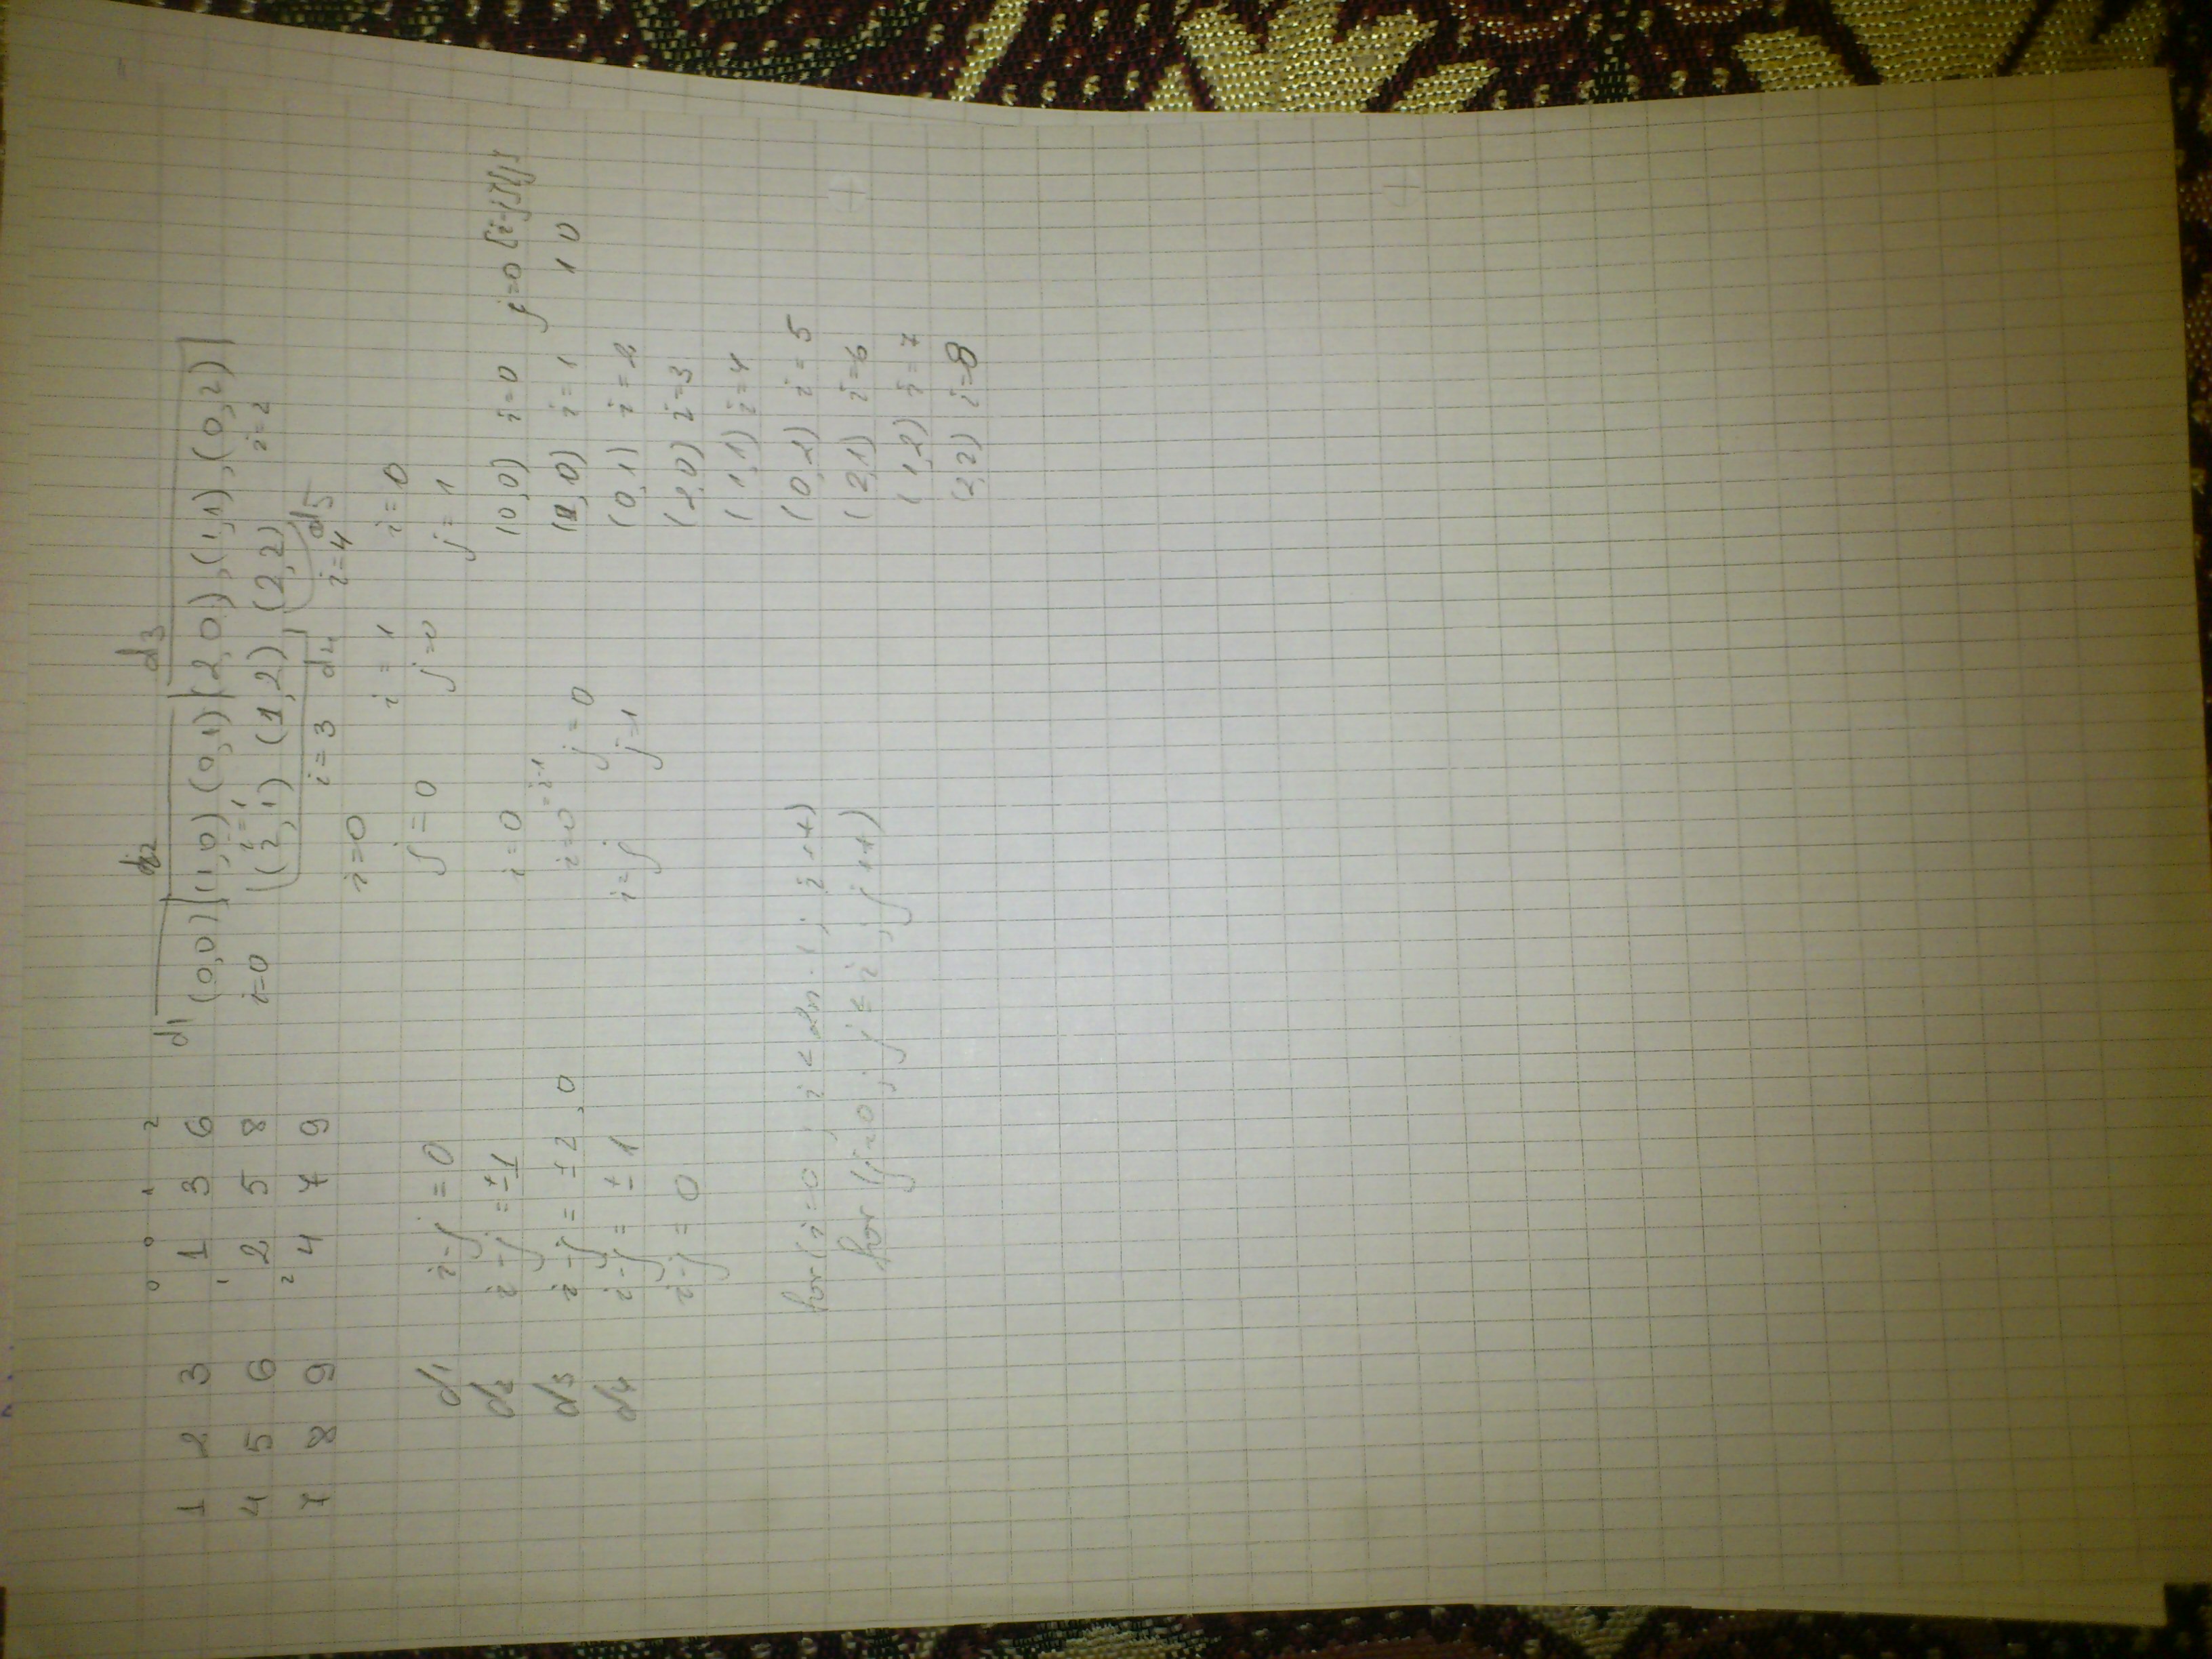 0 1 2
1 2 3   0 1 3 6
4 5 6   1 2 5 8
7 8 9   2 4 7 9
d1 d2 d3
(0,0) (1,0) (0,1) (2,0), (1,1), (0,2)
i=0 i=1 i=2
(2,1) (1,2) (2,2)
i=3 d4 i=4 d5
i=0 i=1 i=0
j=0 j=0 j=1
d1 i-j=0
d2 i-j=±1
d3 i-j=±2,0
d4 i-j=±1
i-j=0
i=0
i=0=i-1
i=j
j=0
j=1
(0,0) i=0 j=0 [i-j][j]
(1,0) i=1 1 0
(0,1) i=2
(2,0) i=3
(1,1) i=4
(0,2) i=5
(2,1) i=6
(1,2) i=7
(2,2) i=8
for(i=0; i<2n-1; i++)
for(j=0; j≤i; j++)